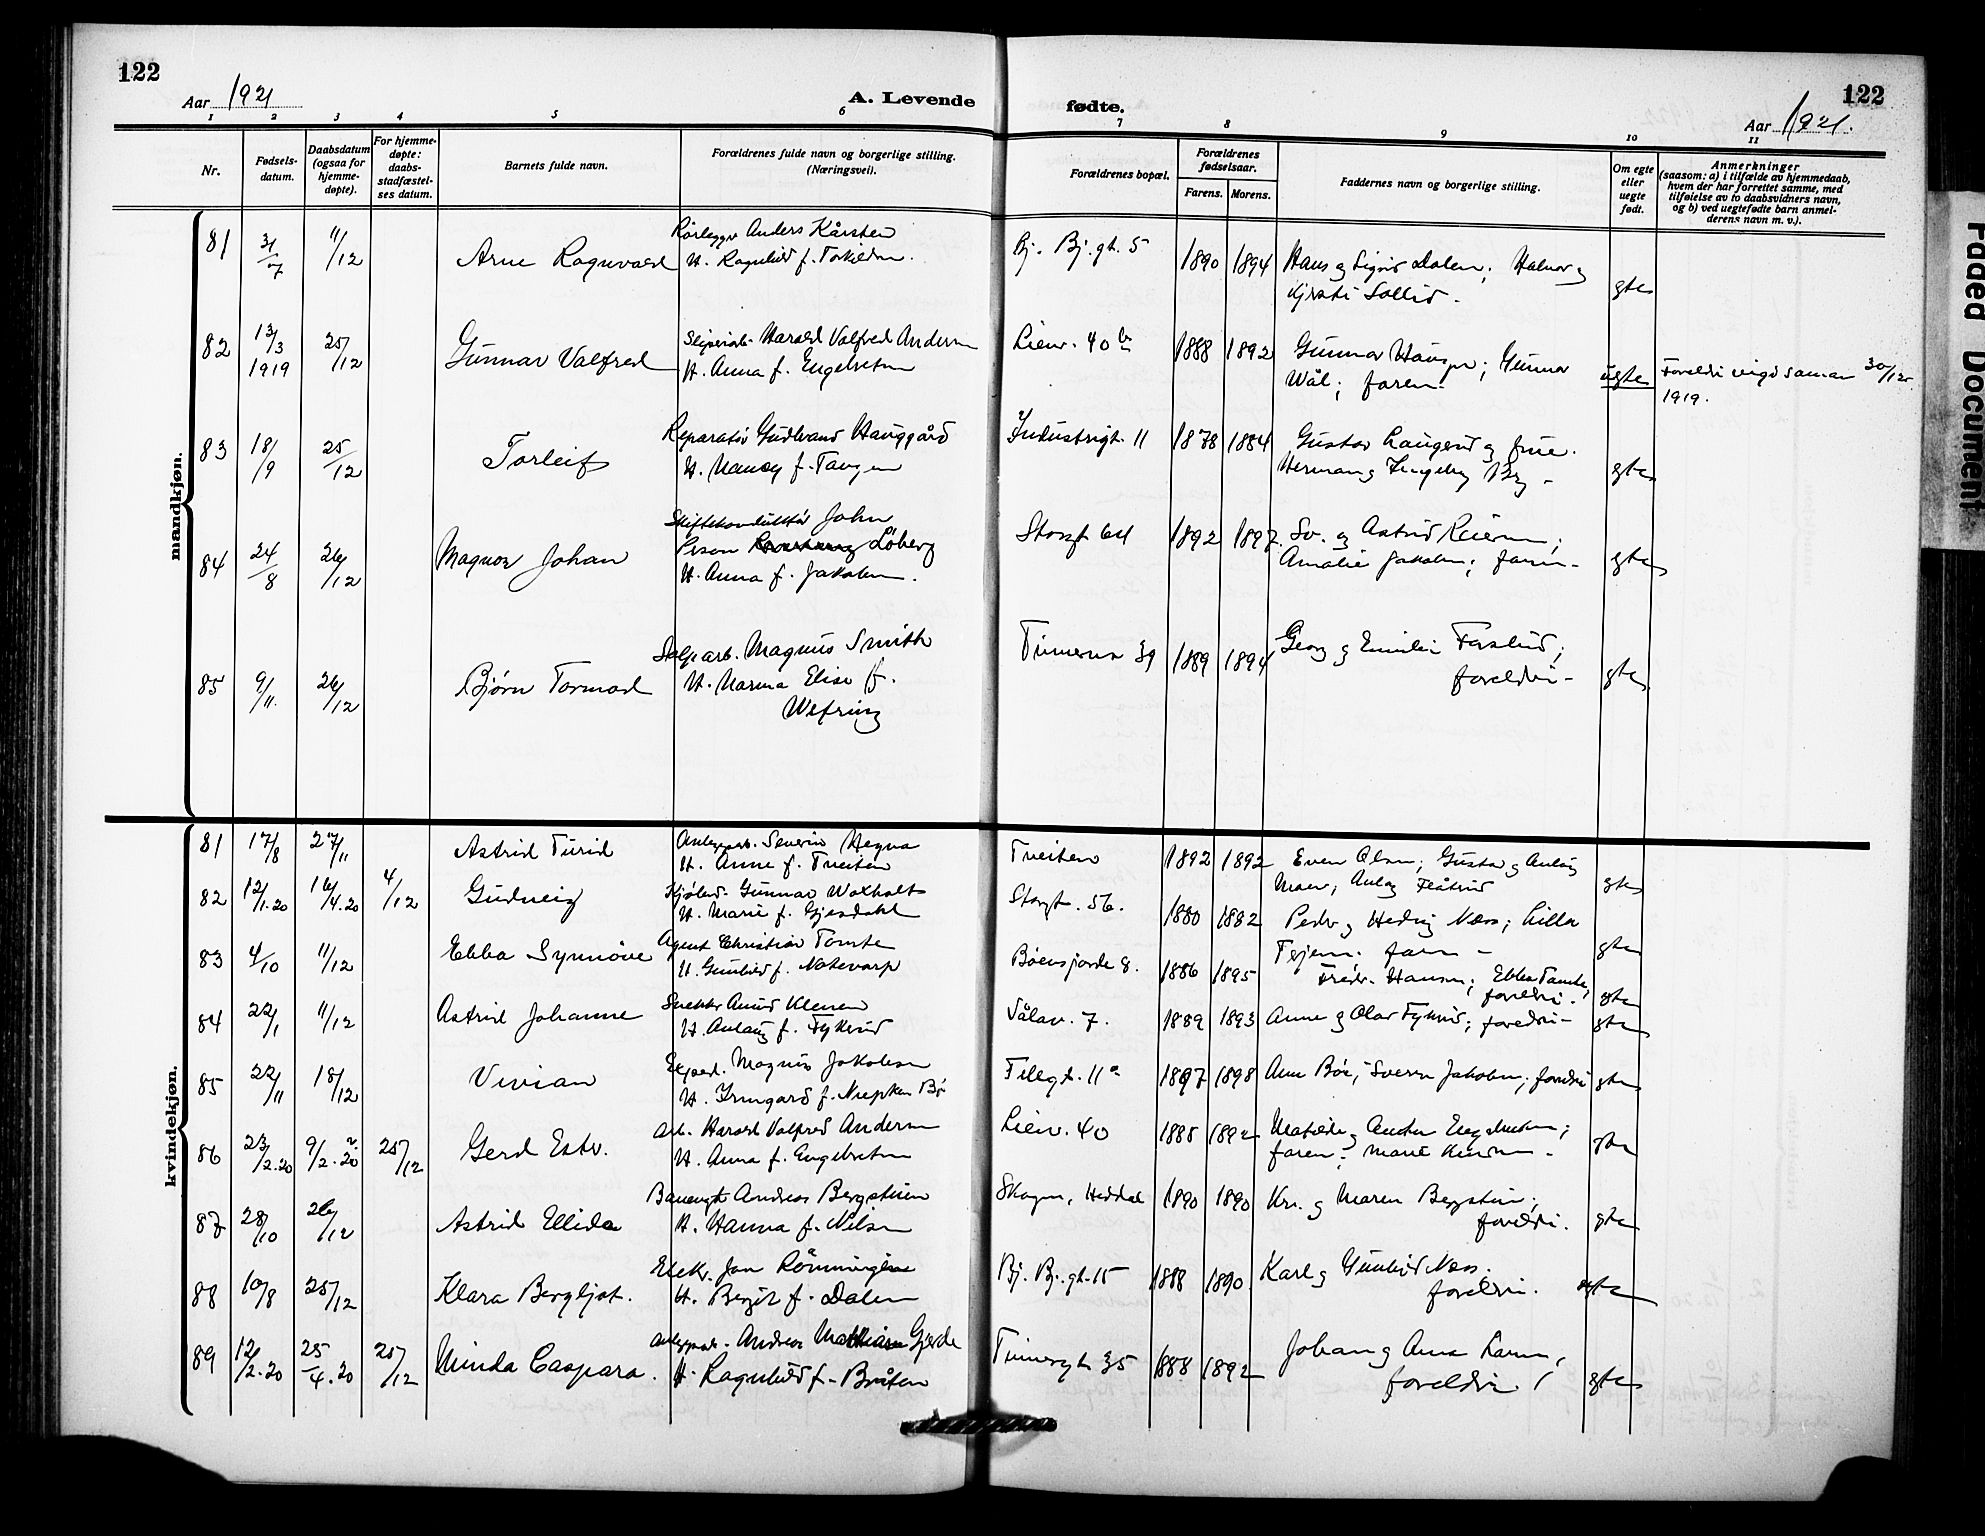 122
122
Aar 1921
A. Levende
fødte.
Aar 1921.
1 2 3 4 5 6 7 8 9 10 11
Nr.
Fødsels-
datum.
Daabsdatum
(ogsaa for
hjemme-
døpte).
For hjemme-
døpte:
daabs-
stadfæstel-
ses datum.
Barnets fulde navn.
Forældrenes fulde navn og borgerlige stilling.
(Næringsvei).
Forældrenes bopæl.
Forældrenes
fødselsaar.
Farens. Morens.
Faddernes navn og borgerlige stilling.
Om egte
eller
uegte
født.
Anmerkninger
(saasom: a) i tilfælde av hjemmedaab,
hvem der har forrettet samme, med
tilføielse av to daabsvidners navn,
og b) ved uegtefødte barn anmel-
derens navn m. v.).
mandkjøn.
81 3/7 11/12 Arne Ragnvald
Rørlegger Anders Kårsten
H. Ragnhild f. Torkildsn.
Bj. Bj. gt. 5 1890 1894
Hans og Sigrid Dalen; Halvor og
Kjersti Sollid -
gte
82 13/3 1919 25/12 Gunnar Valfred
Sliperiarb. Harald Valfred Andersn
H. Anna f. Engebretsn
Lienv. 40 b 1888 1892
Gunnar Hansn; Gunnar
Wål; faren
ugte
Foreldri vigd saman 30/12
1919.
83 18/9 25/12 Torleif
Reparatør Gudbrand Hauggård
H. Nancy f. Tangen
Industrigt. 11 1878 1884
Gustav Laugerud og frue.
Herman og Ingeborg Bry -
gte
84 24/8 26/12 Magnor Johan
Skiftekonduktør John
Person Løberg
H. Anna f. Jakobsn.
Storgt 64 1892 1897
Sv. og Astrid Reiersn;
Amalie Jakobsn; faren -
gte
85 9/11. 26/12 Bjørn Tormod
arb. Magnus Smith
H. Marna Elise f.
Wefring
39 1889 1894
Georg og Emilie Forslund;
foreldri -
gte
kvindekjøn.
81 17/8 27/11 Astrid Turid
Anleggsarb. Severin Hegna
H. Anne f. Tveiten
Tveiten 1892 1892
Even Olsn; Gustav og Aslaug
Moen; Aslaug Flåtind
gte
82 12/1.20 16/4.20 4/12 Gudveig
Gunnar Woxholt
H. Marie f. Gjesdahl
Storgt. 56. 1880 1882
Peder og Hedvig Næss; Lilla
faren -
gte
83 4/10 11/12 Ebba Synnöve
Agent Christian Tomte
H. Gunhild f. Notevarp
Böensjorde 8. 1886 1895
Fredr. Hansn; Ebba Tomte,
foreldri.
gte
84 22/1 11/12 Astrid Johanne
Snekker Amund Klemen
H. Aslaug f. Fykerud
Vålav. 7. 1889 1893
Anne og Olav Fykerud; foreldri -
gte
85 22/11 18/12 Vivian
Exped. Magnus Jakobsen
H. Irmgard f. Niepken Bö
Fillegt. 11 a 1897 1898
Ann Böe; Sverre Jakobsn; foreldri
gte
86 23/2.20 9/2.20 25/12 Gerd Estr.
Arb. Harald Valfred Andersn
H. Anna f. Engebretsn
Lienv. 40 1885 1892
Matilde og Anton Engebretsn;
faren; Marie
gte
87 28/10 26/12 Astrid Ellida
Banevogt Andreas Bergstien
H. Hanna f. Nilsn
Skogen, Heddal 1890 1890
Kr. og Maren Bergstien;
foreldri.
gte
88 10/8 25/12 Klara Bergljot.
Elektr. Jon Rønningene
H. Bergit f. Dalen
Bj. Bj. gt. 15 1888 1890
Karl og Gunhild Næss.
foreldri.
gte
89 12/2.20 25/4.20 25/12 Minda Caspara.
Anleggsarb. Andreas Mathiasn Gjerde
H. Ragnhild f. Bråten
35 1888 1892
Johan og Anna Larsn,
foreldri
gte
Faded Document